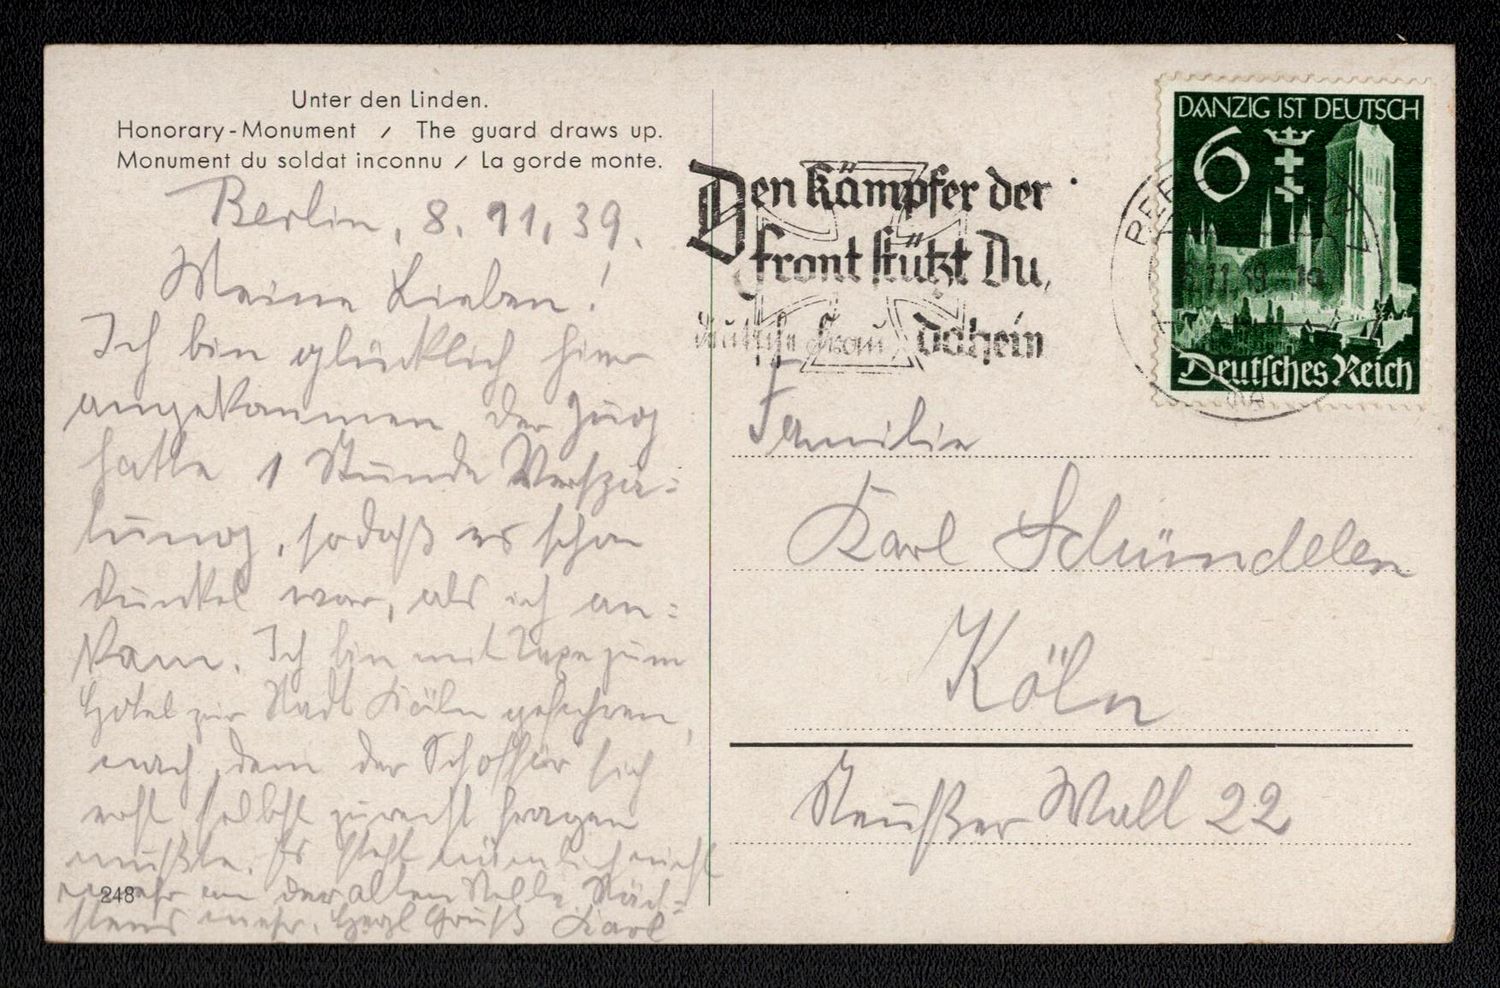 Unter den Linden.
Honorary-Monument / The guard draws up.
Monument du soldat inconnu / La gorde monte.
Berlin, 8. 11. 39.
Meine Lieben!
Ich bin glücklich hier
angekommen, der Zug
hatte 1 Stunde Verspä=
tung, sodaß es schon
dunkel war, als ich an=
kam. Ich bin mit Taxe zum
Hotel zur Stadt Köln gefahren,
nachdem der Schofför sich
erst selbst zurecht fragen
mußte. Es steht nämlich nicht
mehr an der alten Stelle. Näch=
stens mehr. Herzl Gruß Karl
248
Den Kämpfer der
Front stützt Du,
deutsche Frau daheim
DANZIG IST DEUTSCH
6
Deutsches Reich
11.39
Familie
Karl Schündelen
Köln
Neußer Wall 22